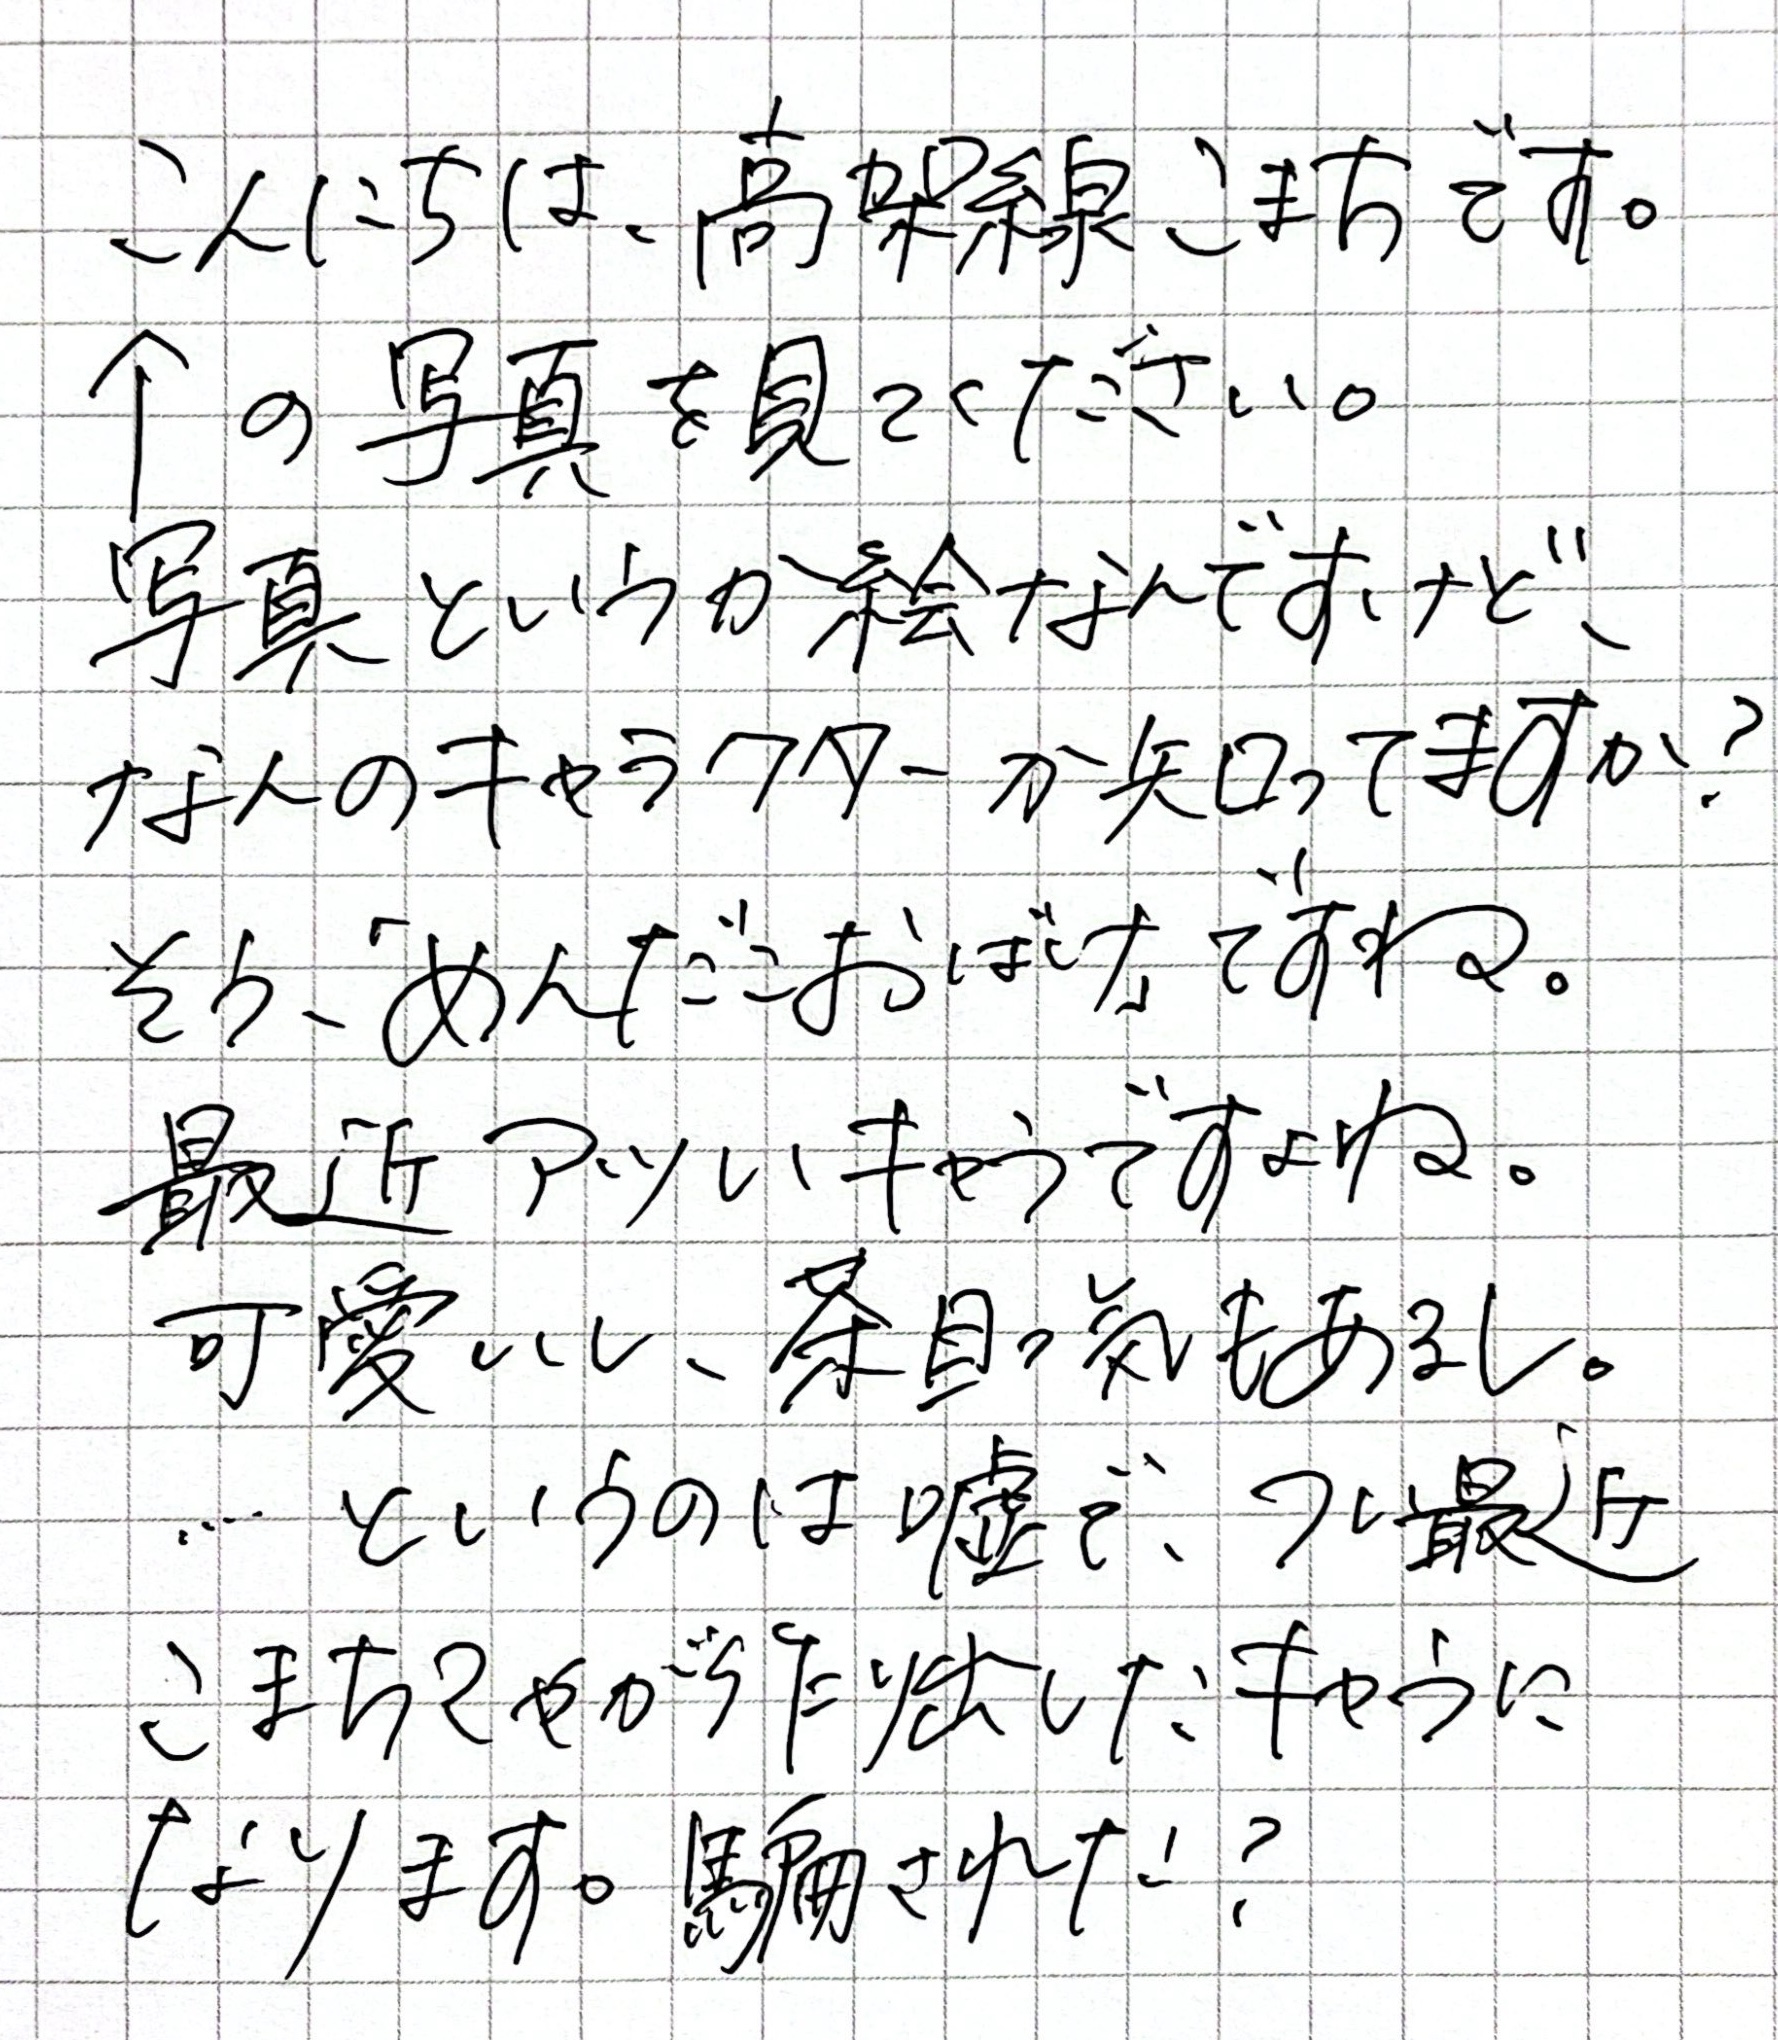 こんにちは、高架線こまちです。
↑の写真を見てください。
写真というか絵なんですけど、
なんのキャラクターか知ってますか?
そう、「めんだこおばけ」ですね。
最近アツいキャラですよね。
可愛いし、茶目っ気もあるし。
…というのは嘘で、つい最近
こまちてゃが作り出したキャラに
なります。騙された?